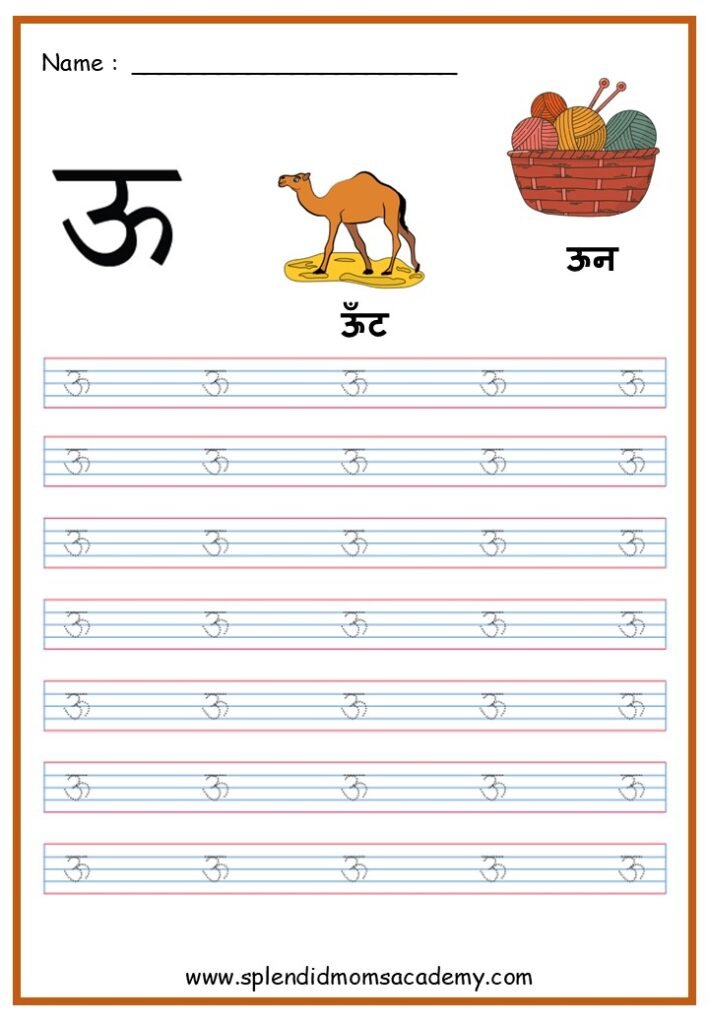 Name : ______________________
ऊ
ऊन
ऊँट
ऊ ऊ ऊ ऊ ऊ
ऊ ऊ ऊ ऊ ऊ
ऊ ऊ ऊ ऊ ऊ
ऊ ऊ ऊ ऊ ऊ
ऊ ऊ ऊ ऊ ऊ
ऊ ऊ ऊ ऊ ऊ
ऊ ऊ ऊ ऊ ऊ
www.splendidmomsacademy.com